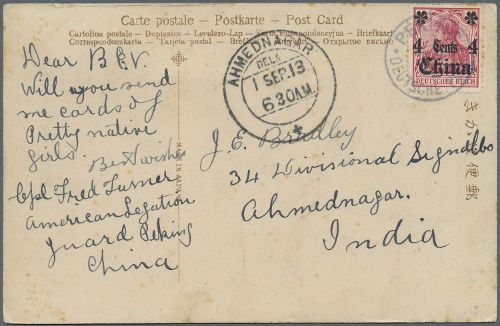 Carte postale - Postkarte - Post Card
Cartolina postale - Dopisnice - Levelezo-Lap -
Correspondenzkarte - Tarjeta postal -
Открытое письмо
Dear B.E.V.
Will you send
me cards of
Pretty native
girls.
Best wishes
Cpl Fred Turner
American Legation
Guard Peking
China
AHMEDNAGAR
DELY.
1 SEP. 13
6 30 AM.
4 Cents 4
China
DEUTSCHES REICH
DEUTSCHE
きかは便郵
J. E. Bradley
34 Divisional Signal Co
Ahmednagar.
India